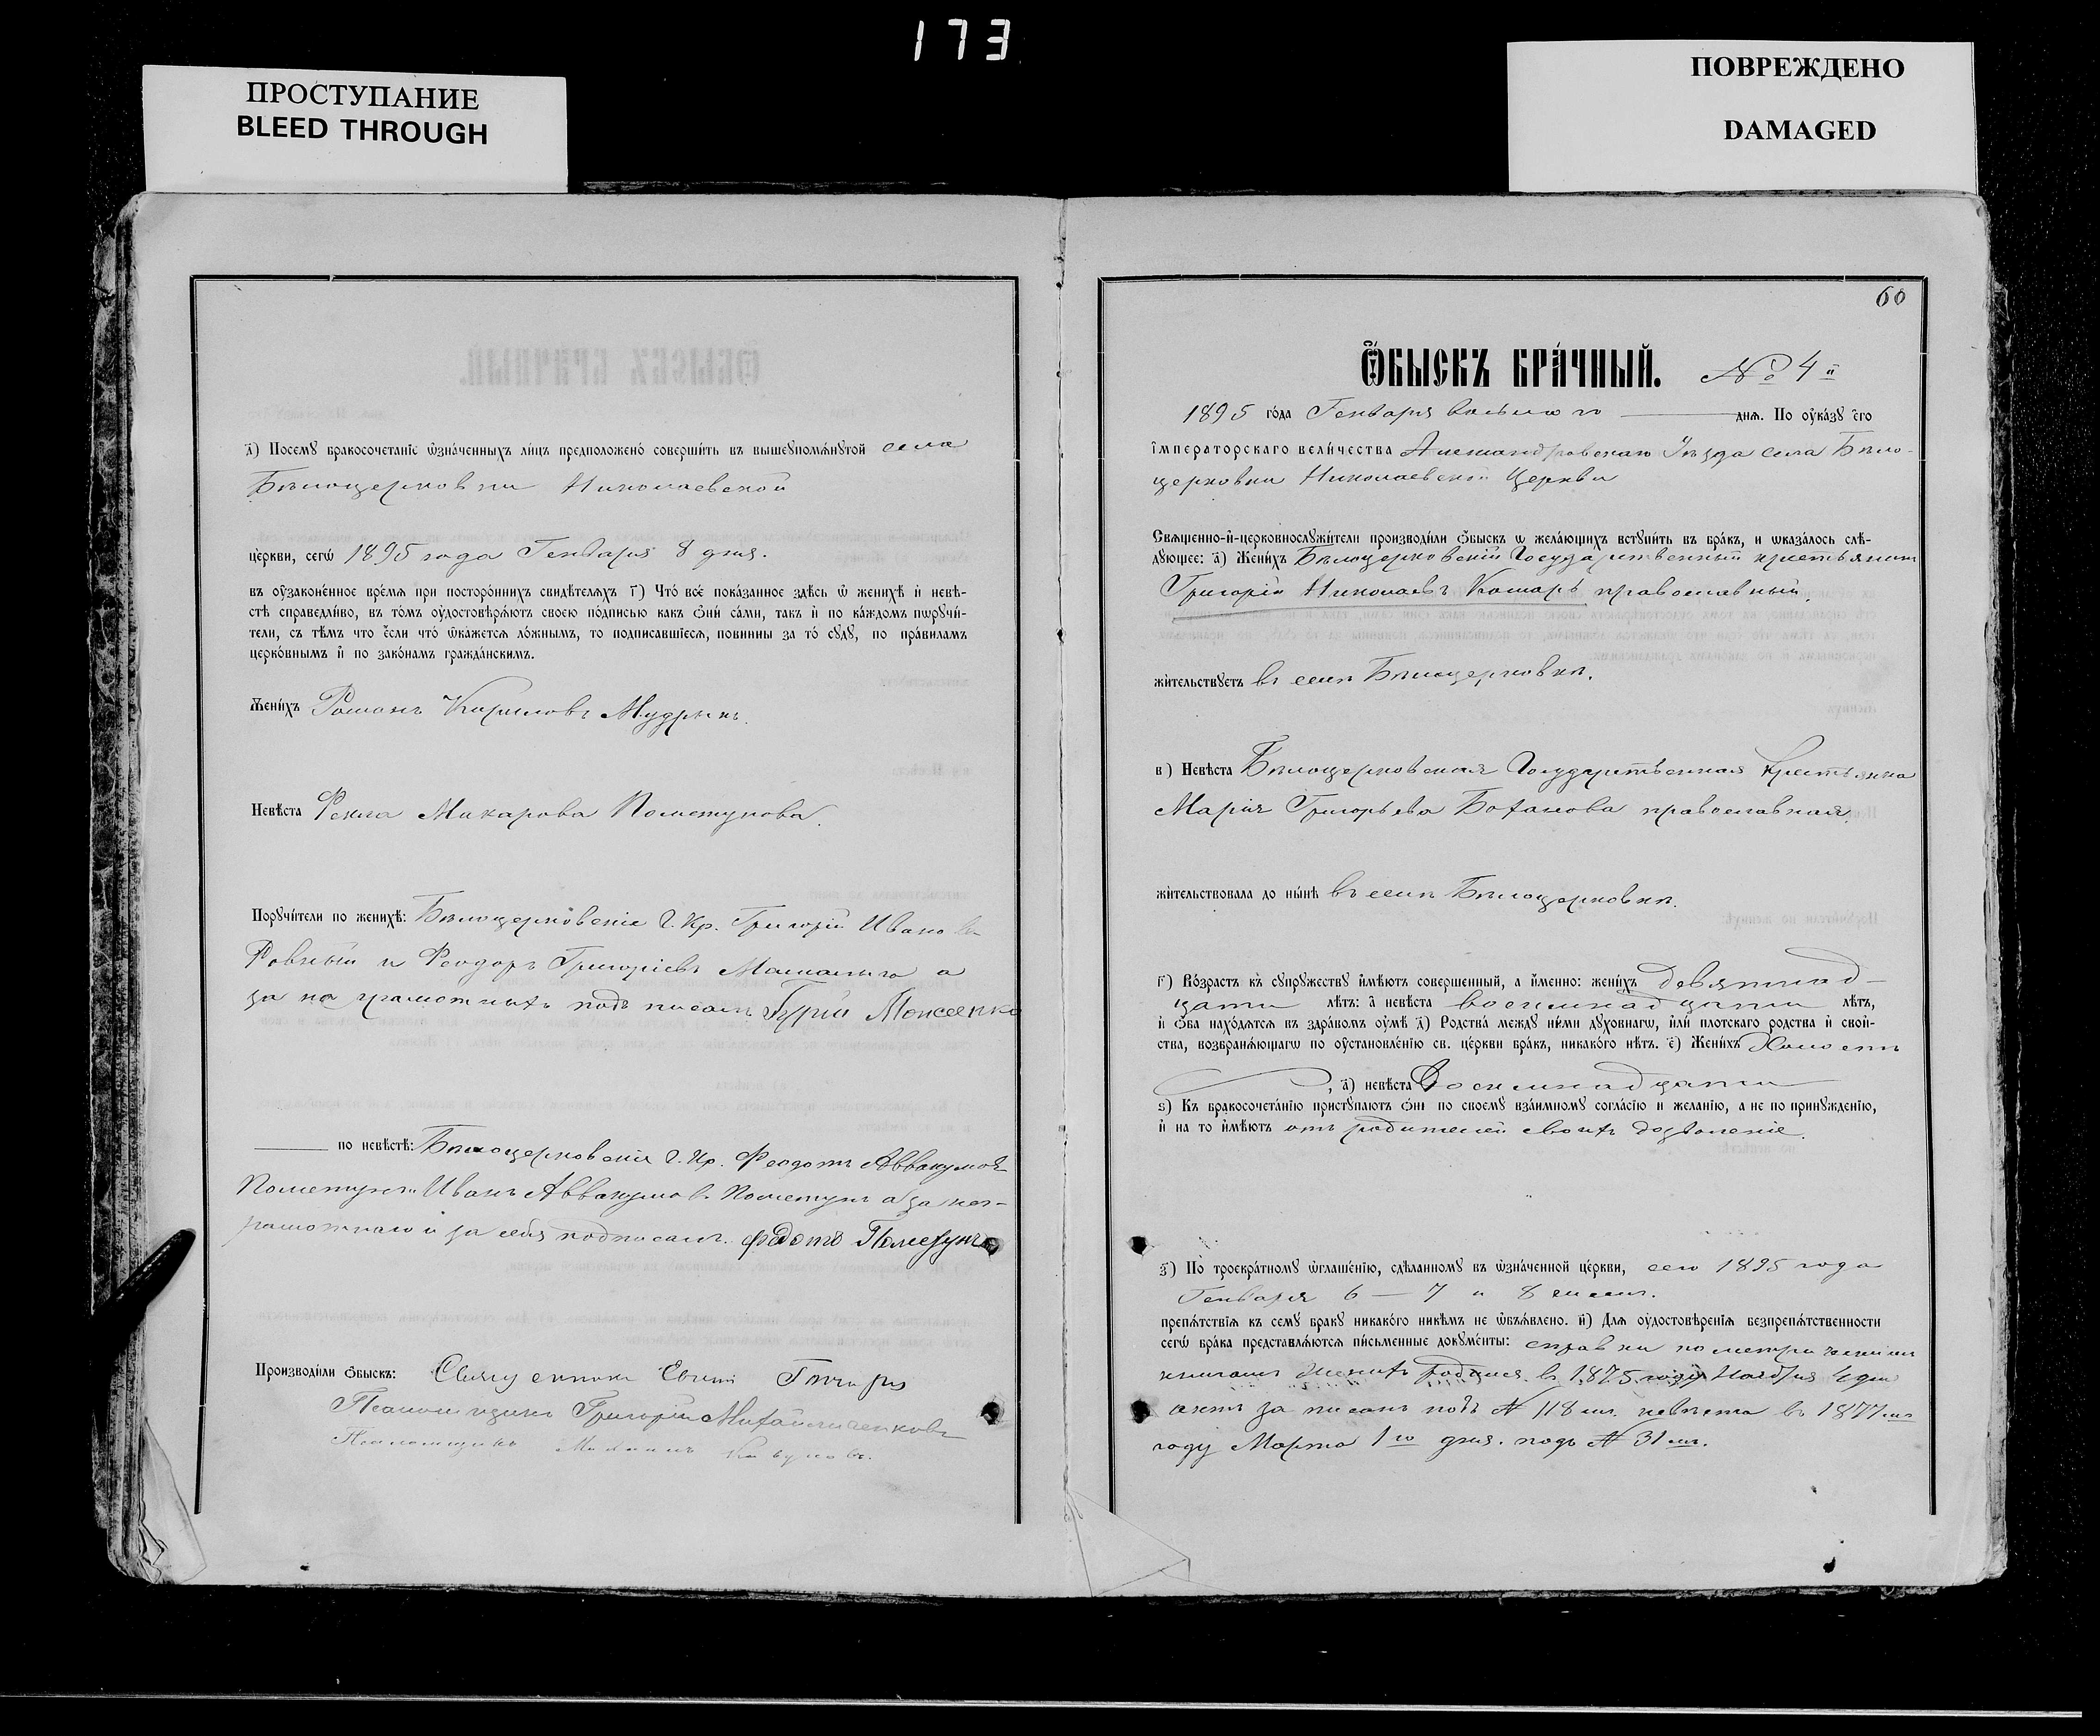 173
ПРОСТУПАНИЕ
BLEED THROUGH
ПОВРЕЖДЕНО
DAMAGED
д҃) Посемꙋ бракосочетаніе ѡзначенныхъ лицъ предположено совершить въ вышеꙋпомянꙋтой села
Бѣлоцерковки Николаевской
церкви, сегѡ 1895 года Генваря 8 дня.
въ оузаконенное время при постороннихъ свидѣтеляхъ Г҃) Что все показанное здѣсь ѿ женихѣ и невѣ-
стѣ справедливо, въ томъ оудостовѣряютъ своею подписью какъ ѻни сами, такъ и по каждомъ пѡрꙋчи-
тели, съ тѣмъ что если что ѿкажется ложнымъ, то подписавшіеся, повинны за то сꙋдꙋ, по правиламъ
церковнымъ и по законамъ гражданскимъ.
Женихъ Романъ Кириловъ Мудрыкъ.
Невѣста Фекла Макарова Пометунова.
Порꙋчители по женихѣ: Бѣлоцерковскіе Г. Кр. Григорій Иванов
Ровный и Феодоръ Григоріевъ а
за не грамотныхъ подписалъ Гурій Моисеенко
по невѣстѣ: Бѣлоцерковскія Г. Кр. Феодотъ Аввакумовъ
Пометунъ и Иванъ Аввакумовъ Пометунъ а за нег-
рамотнаго и за себя подписалъ. Федотъ Пометунъ
Производили ѻбыскъ: Священникъ
Псаломщикъ Григорій Михайличенковъ
Псаломщикъ
60
Ѻбыскъ брачный. № 4й
1895 года Генваря восьмого дня. По оуказꙋ его
императорскаго величества Александровскаго Уѣзда села Бѣло-
церковки Николаевской Церкви
Священно-и-церковнослꙋжители производили ѻбыскъ ѡ желающихъ встꙋпить въ бракъ, и ѡказалось слѣ-
дꙋющее: а҃) Женихъ Бѣлоцерковскій Государственный крестьянин
Григорій Николаевъ Комаръ православный.
жительствꙋетъ въ селѣ Бѣлоцерковкѣ.
в) Невѣста Бѣлоцерковская Государственная Крестьянка
Марія Григорьева Боханова православная.
жительствовала до нынѣ въ селѣ Бѣлоцерковкѣ.
г҃) Возрастъ къ сꙋпрꙋжествꙋ имѣютъ совершенный, а именно: женихъ девятнад-
цати лѣтъ: а невѣста восемнадцати лѣтъ,
и ѻба находятся въ здравомъ оумѣ д҃) Родства междꙋ ними дꙋховнагѡ, или плотскаго родства и свой-
ства, возбраняющагѡ по оустановленію св. церкви бракъ, никакого нѣтъ. е҃) Женихъ Холостъ
, а҃) невѣста Восемнадцати
ѕ) Къ бракосочетанію пристꙋпаютъ ѻни по своемꙋ взаимномꙋ согласію и желанію, а не по принꙋжденію,
и на то имѣютъ отъ родителей своихъ дозволеніе.
з҃) По троекратномꙋ ѡглашенію, сдѣланномꙋ въ ѡзначенной церкви, сего 1895 года
Генваря 6 — 7 и 8 числ.
препятствія къ семꙋ бракꙋ никакого никѣмъ не ѡбъявлено. и҃) Для оудостовѣренія безпрепятственности
сегѡ брака представляются письменные докꙋменты: справки по метрическимъ
книгамъ Женихъ родился въ 1875 году Ноября 4 дня
актъ записанъ подъ № 118 м. невѣста въ 1877 мъ
году Марта 1го дня. подъ № 31 м.